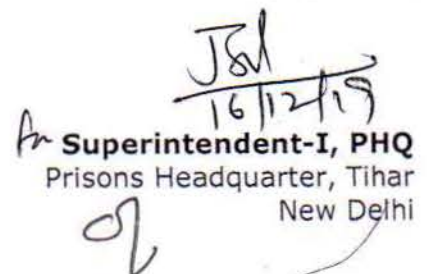 16/12/19
for Superintendent-I, PHQ
Prisons Headquarter, Tihar
New Delhi